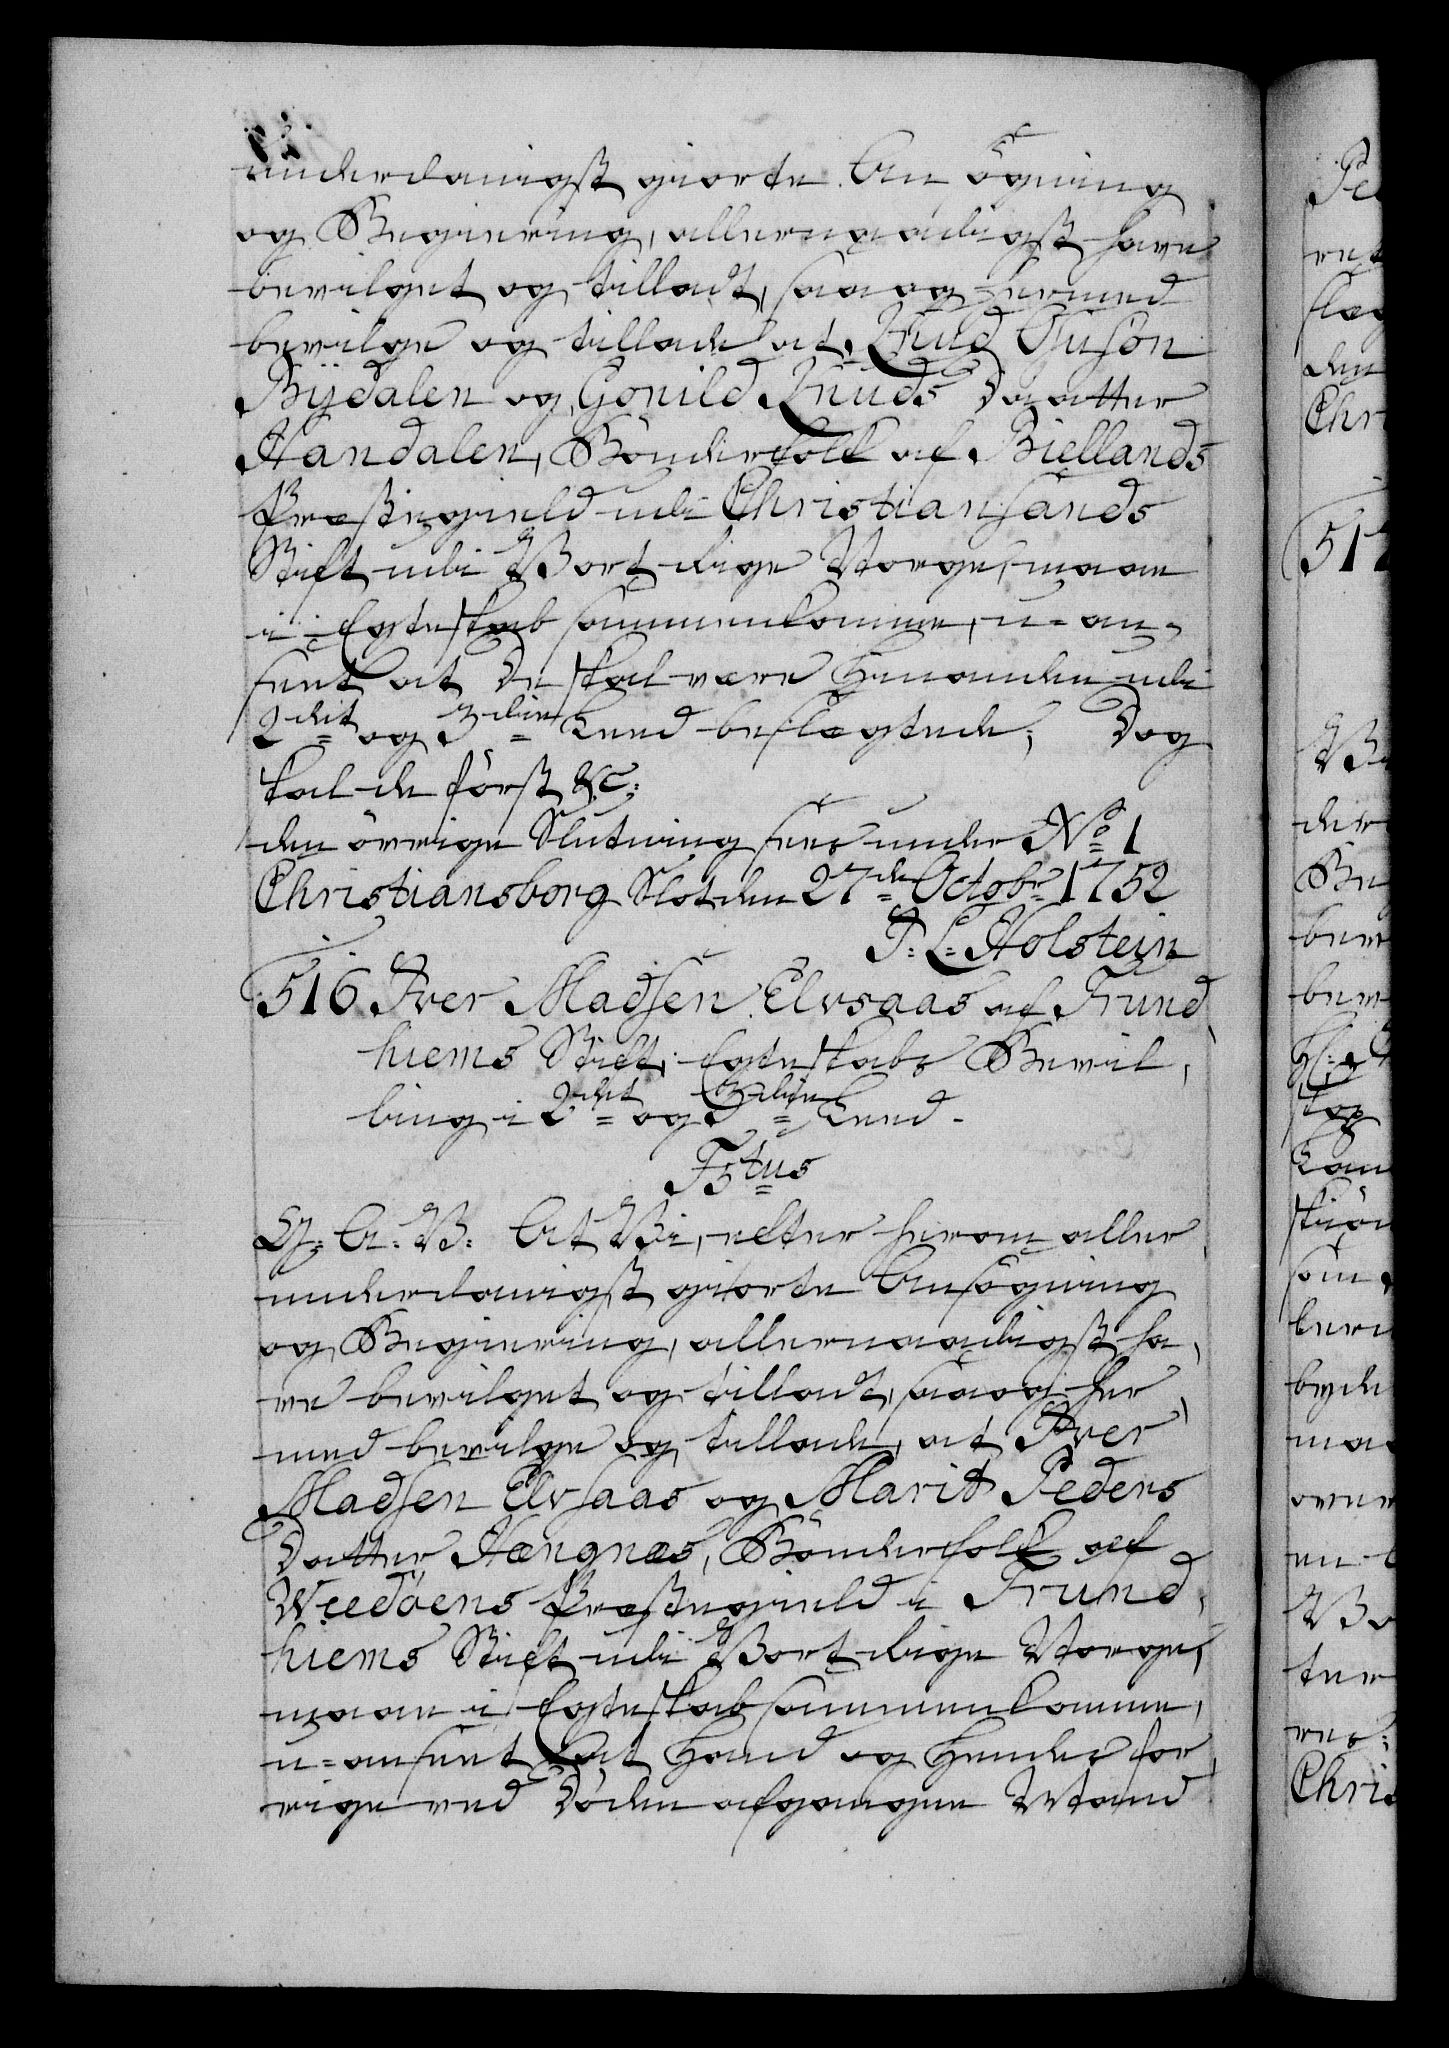 underdanigst giorte Ansögning
og Begiering, allernaadigst have
bevilget og tilladt, saa og hermed
bevilge og tillade at Knud Ouson
Bÿdalen og Gonild Knuds Daatter
Aandalen, Bönderfolk af Biellands
Præstegield udi Christiansands
Stift udi Vort Rige Norge, maae
i Egteskab sammenkomme, u-an-
seet at De skal være hinanden udi
2det og 3die Leed beslægtede; Dog
skal de först &c:
den övrige Slutning sees under No 1
Christiansborg Slot den 27de Octobr 1752
J: L: Holstein
516 Iver Madsen Elvsaas af Trund
hiems Stift, Egteskabs Bevil,
ling i 2det og 3die Leed.
F5tus
G: A: V: At Vi, efter herom aller
underdanigst giorte Ansögning
og Begiering, allernaadigst ha,
ve bevilget og tilladt, saa og her
med bevilge og tillade, at Iver
Madsen Elvsaas og Marit Peders
Datter Hængnæs, Bönderfolk af
Weedöens Præstegield i Trund,
hiems Stift udi Vort Rige Norge,
maae i Egteskab sammenkomme,
u-anseet at Hand og Hendes for,
rige ved Döden afgangne Mand